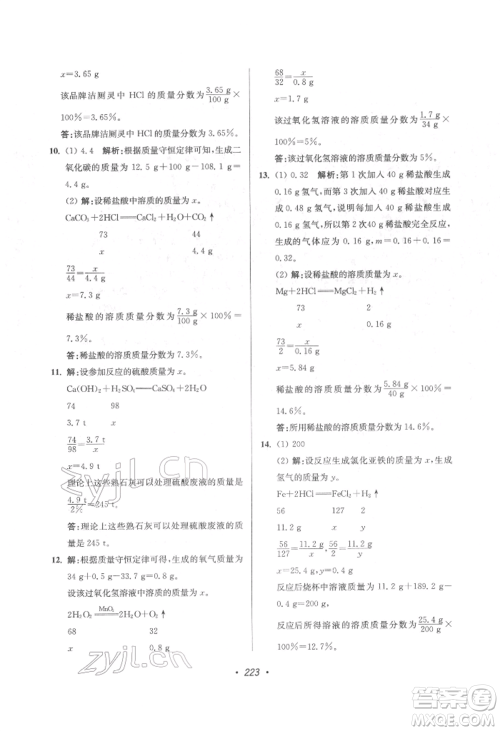 x=3.65 g
该品牌洁厕灵中 HCl 的质量分数为 3.65 g/100 g ×
100%=3.65%。
答:该品牌洁厕灵中 HCl 的质量分数为 3.65%。
10. (1) 4.4 解析:根据质量守恒定律可知,生成二
氧化碳的质量为 12.5 g+10 g+100 g-118.1 g=
4.4 g。
(2) 解:设稀盐酸中溶质的质量为 x。
CaCO₃+2HCl══CaCl₂+H₂O+CO₂↑
73 44
x 4.4 g
73/44=x/4.4 g
x=7.3 g
稀盐酸的溶质质量分数为 7.3 g/100 g ×100%=
7.3%。
答:稀盐酸的溶质质量分数为 7.3%。
11. 解:设参加反应的硫酸质量为 x。
Ca(OH)₂+H₂SO₄══CaSO₄+2H₂O
74 98
3.7 t x
74/98=3.7 t/x
x=4.9 t
理论上这些熟石灰可以处理硫酸废液的质量为
4.9 t/2%=245 t。
答:理论上这些熟石灰可以处理硫酸废液的质
量为 245 t。
12. 解:根据质量守恒定律可得,生成的氧气质量为
该过氧化氢溶液的溶质质量为 x。
2H₂O₂══MnO₂══2H₂O+O₂↑
68 32
x 0.8 g
68/32=x/0.8 g
x=1.7 g
该过氧化氢溶液的溶质质量分数为 1.7 g/34 g ×
100%=5%。
答:该过氧化氢溶液的溶质质量分数为 5%。
13. (1) 0.32 解析:第 1 次加入 40 g 稀盐酸生成
0.16 g 氢气,而第 3 次共加入 120 g 稀盐酸生成
0.48 g 氢气,说明第 2 次加入的稀盐酸也生成
0.16 g 氢气,与 40 g 稀盐酸完全反应,所以
生成的气体应为 m=0.16+0.16=
0.32。
(2) 解:设稀盐酸的溶质质量为 x。
Mg+2HCl══MgCl₂+H₂↑
73 2
x 0.16 g
73/2=x/0.16 g
x=5.84 g
稀盐酸的溶质质量分数为 5.84 g/40 g ×100%=
14.6%。
答:所用稀盐酸的溶质质量分数为 14.6%。
14. (1) 200
(2) 解:设反应生成氯化亚铁的质量为 x,生成
氢气的质量为 y。
Fe+2HCl══FeCl₂+H₂↑
56 127 2
11.2 g x y
56/127=11.2 g/x
x=25.4 g, y=0.4 g
反应后所得溶液的溶质质量分数为 25.4 g/200 g ×
100%=12.7%。
223
zyjl.cn
zyjl.cn
答案圈